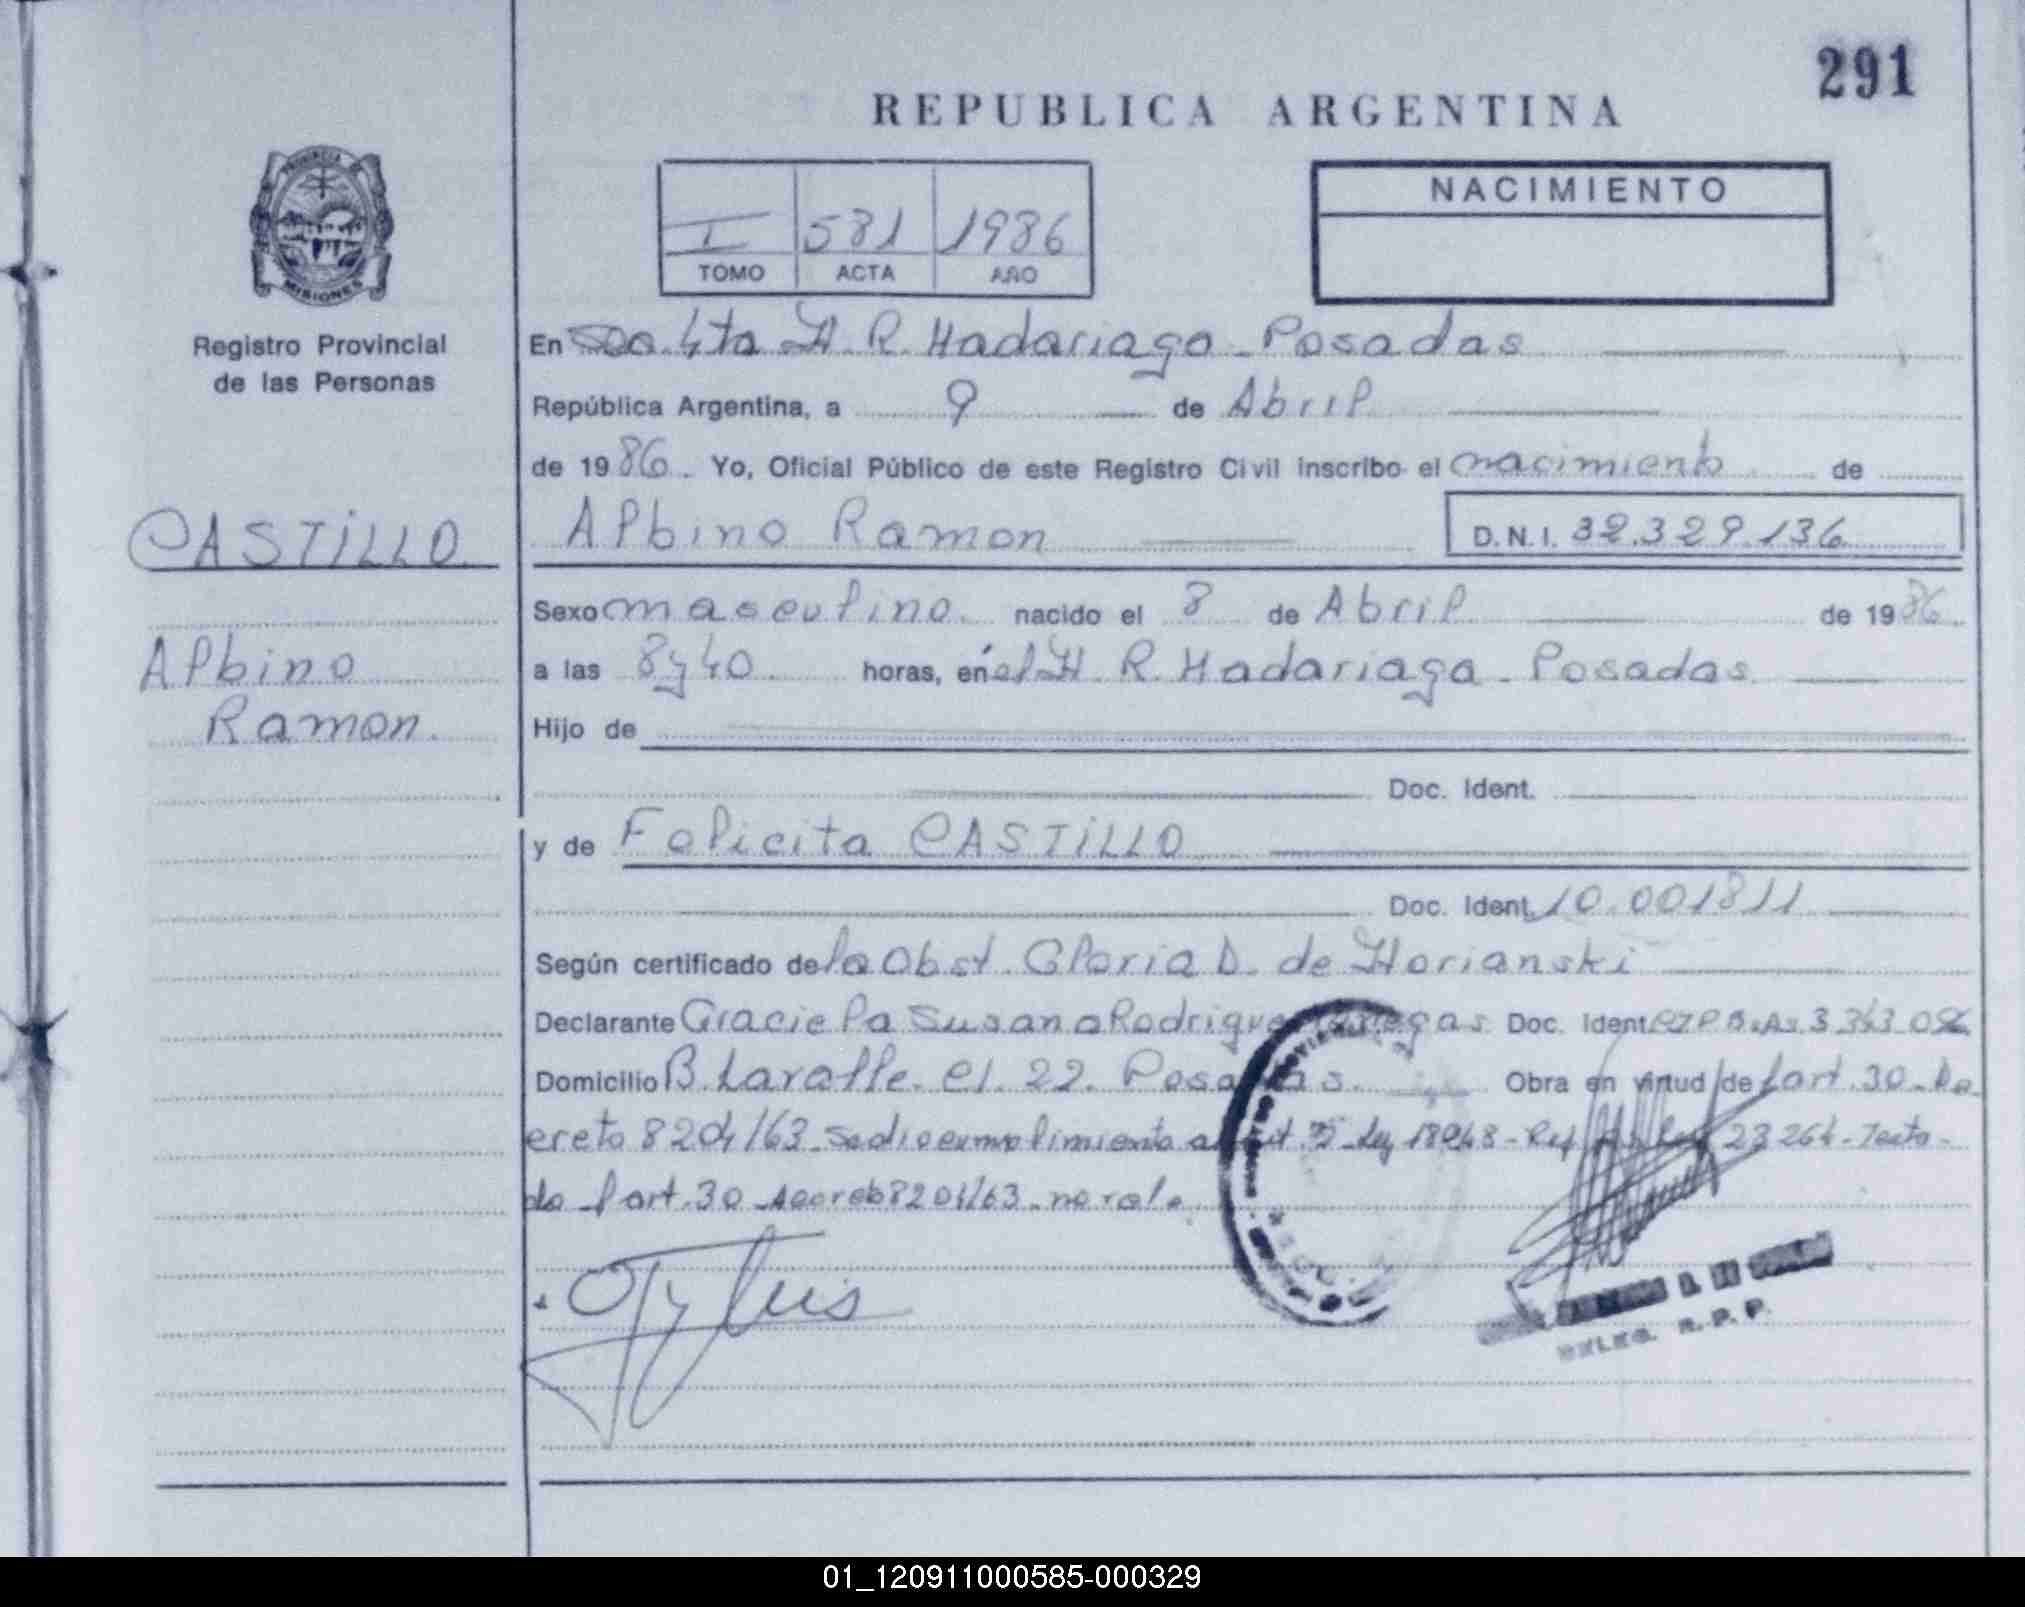 291
REPUBLICA ARGENTINA
NACIMIENTO
I 581 1986
TOMO ACTA AÑO
PROVINCIA DE
MISIONES
Registro Provincial
de las Personas
En Sec. 4ta H. R. Madariaga - Posadas
República Argentina, a 9 de Abril
de 1986. Yo, Oficial Público de este Registro Civil inscribo el nacimiento de
CASTILLO
Albino Ramon D.N.I. 32.329.136
Sexo masculino. nacido el 8 de Abril de 1986.
Albino
Ramon.
a las 8y40 horas, en el H. R. Madariaga - Posadas
Hijo de
Doc. Ident.
y de Felicita CASTILLO
Doc. Ident. 10.001811
Según certificado de la Obst. Gloria D. de Horianski
Declarante Graciela Susana Rodrigue Doc. Ident. 3.343.0
Domicilio B. Laralle. el. 22. Posadas. Obra en virtud de l art. 30 - De
creto 8204/63 - se dio cumplimiento a Ley 18248 - Ref. 23264 - Testa-
do - l art. 30 - decreto 8204/63 - no vale.
R. P. P.
01_120911000585-000329